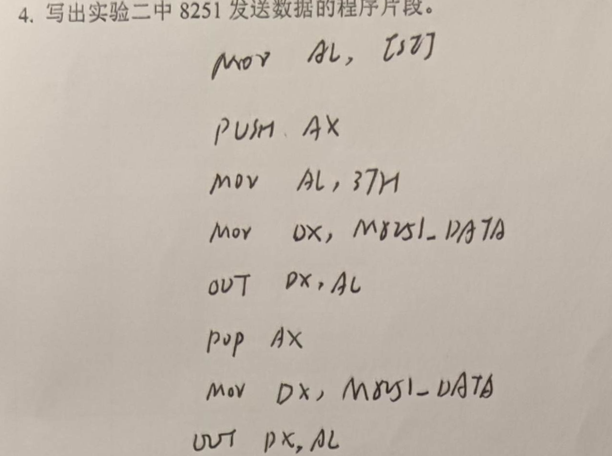 4. 写出实验二中 8251 发送数据的程序片段。
MOV AL, [SI]
PUSH AX
MOV AL, 37H
MOV DX, M8251_DATA
OUT DX, AL
POP AX
MOV DX, M8251_DATA
OUT DX, AL